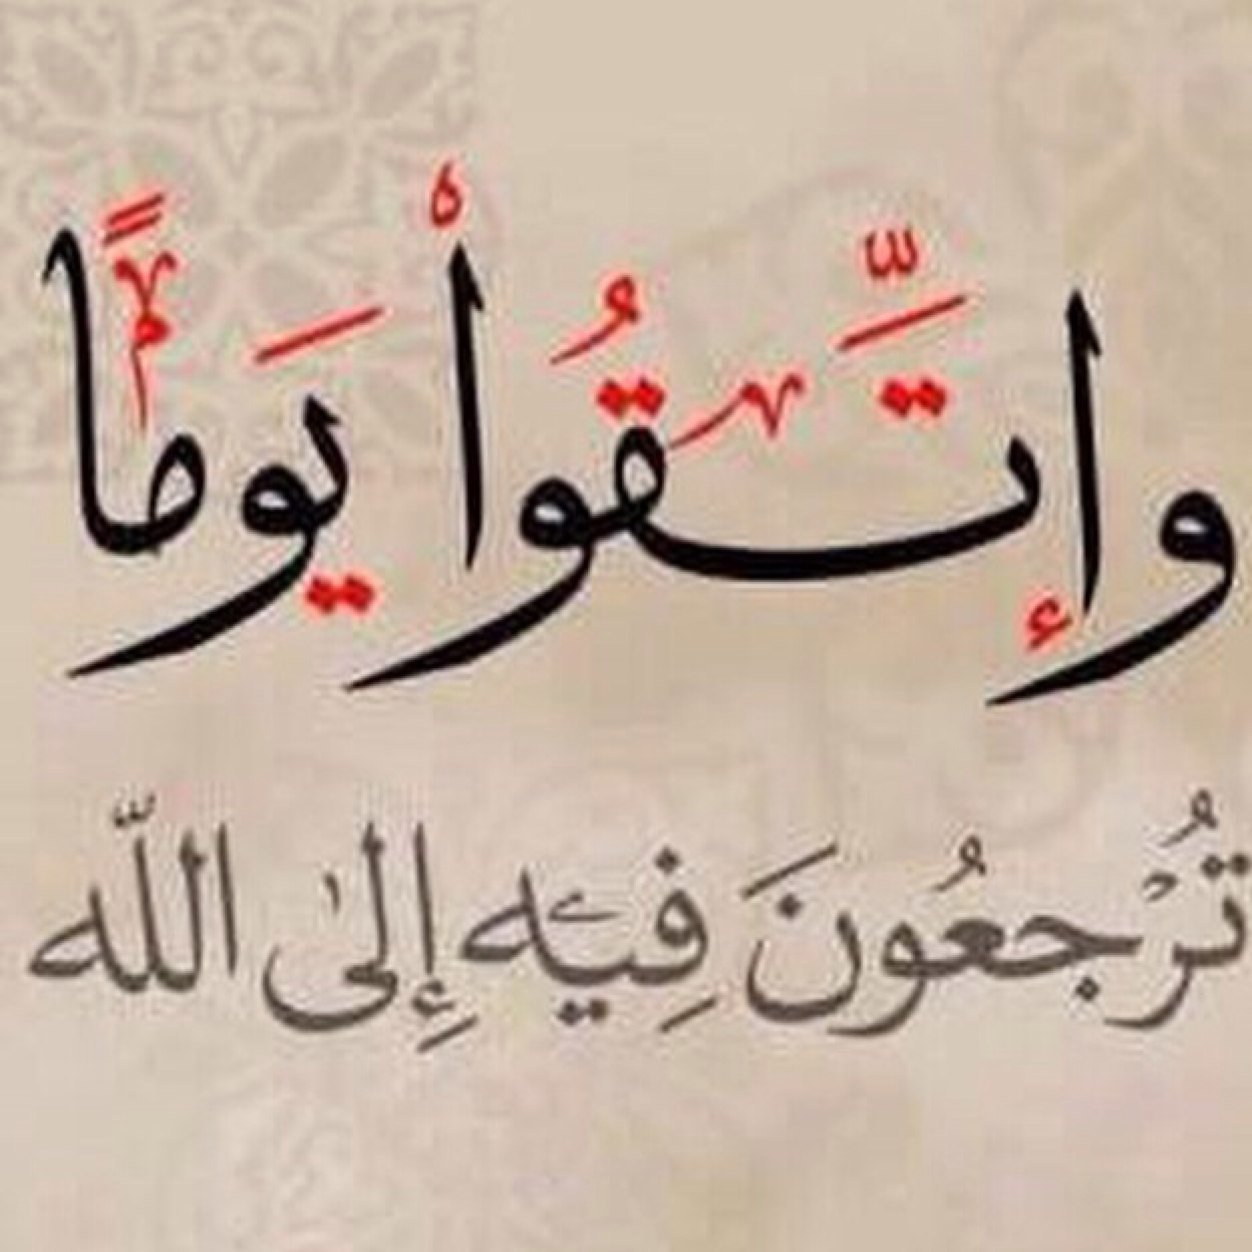 وإتَّقُوا يَوماً
تُرْجعُونَ فِيهِ إِلىٰ اللّه